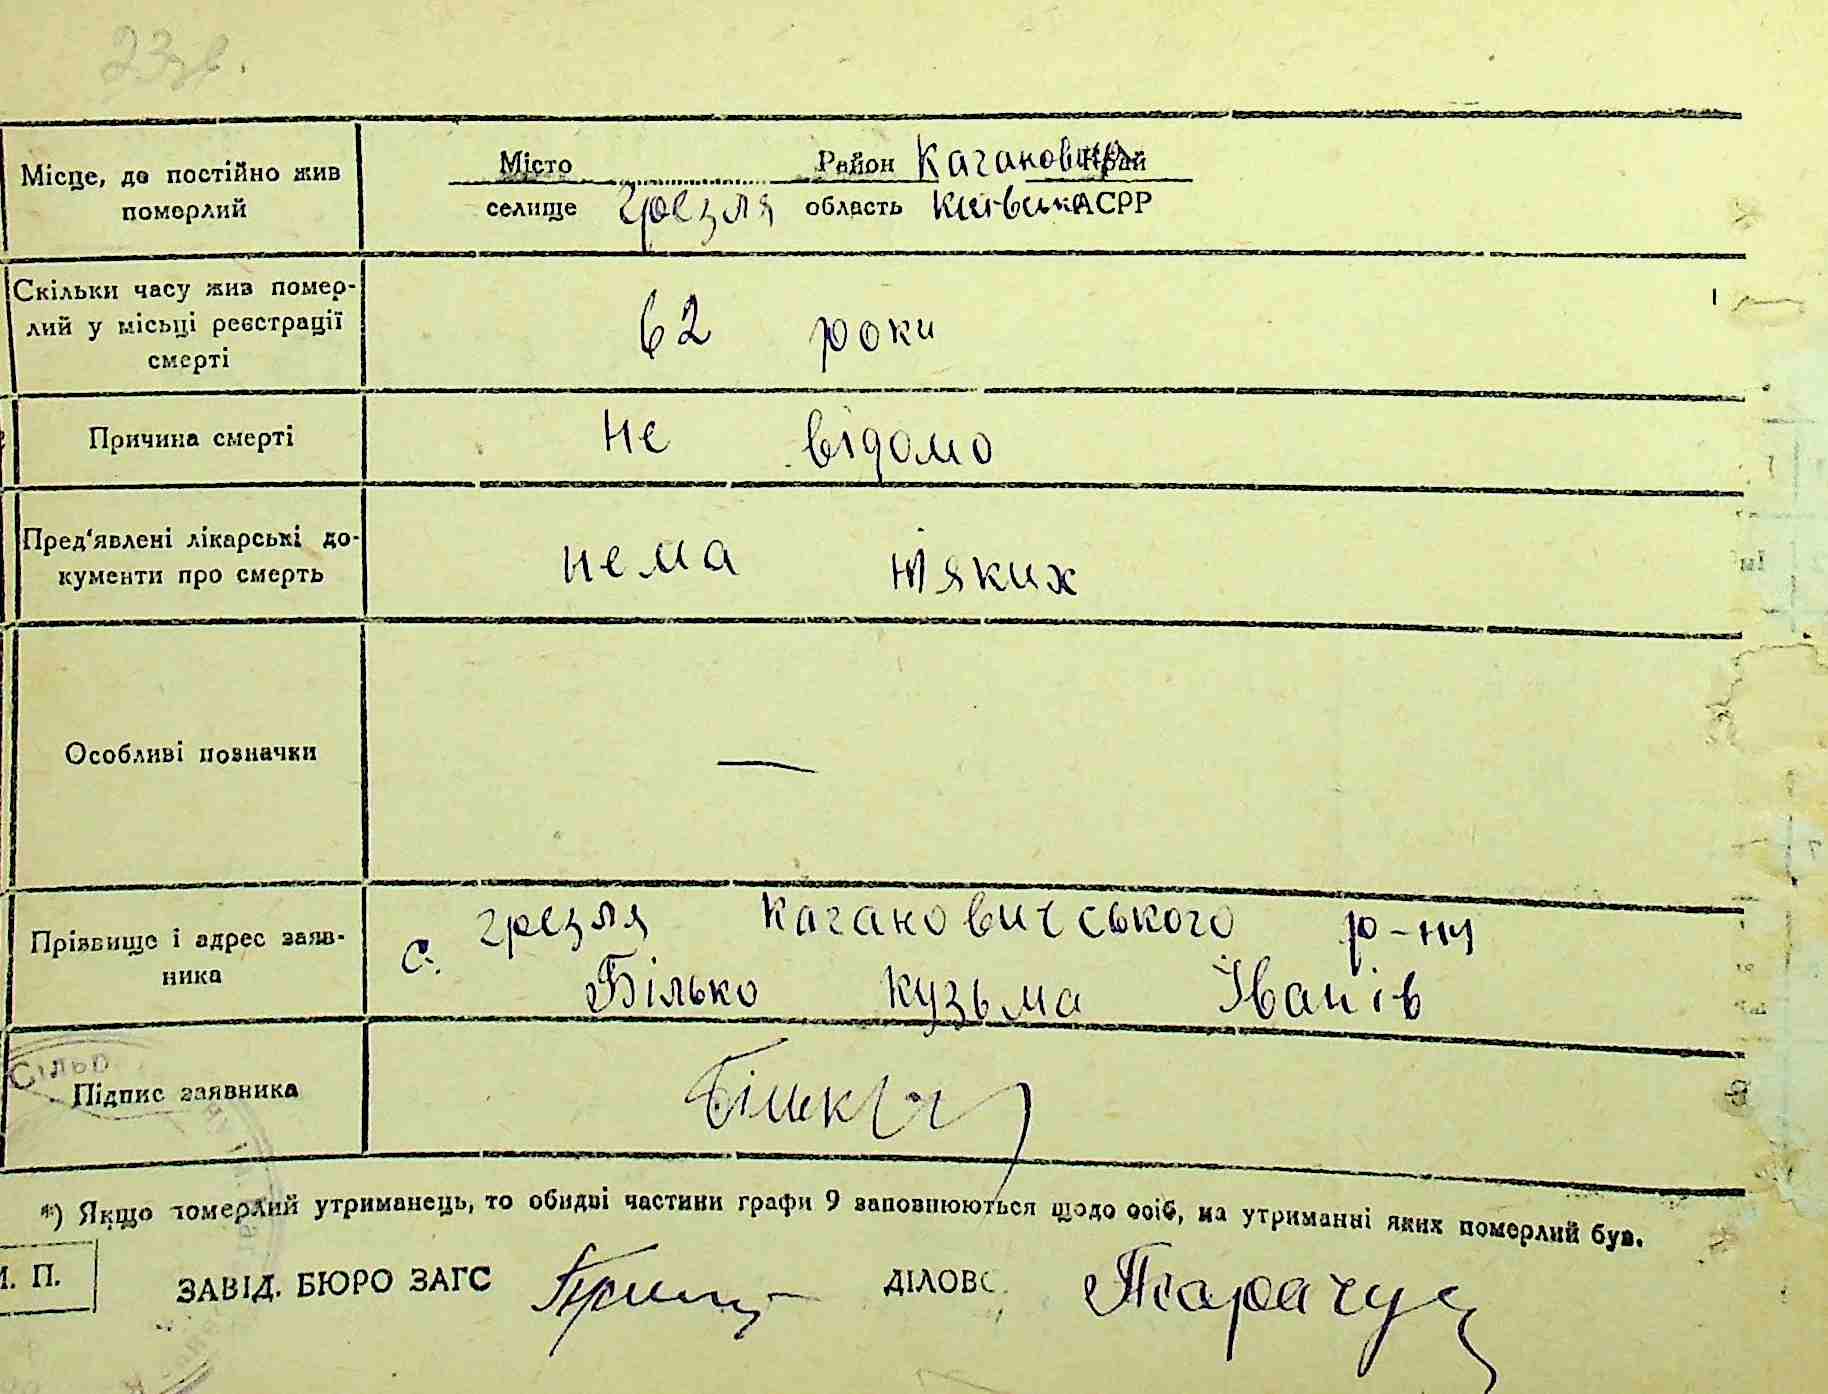 23зв.
Місце, де постійно жив
померлий
Місто Район Каганович Край
селище Грезля область Київська АСРР
Скільки часу жив помер-
лий у місьці реєстрації
смерті
62 роки
Причина смерті
не відомо
Пред'явлені лікарські до-
кументи про смерть
нема ніяких
Особливі позначки
—
Прізвище і адрес заяв-
ника
с. грезля Кагановичського р-ну
Білько Кузьма Іванів
Підпис заявника
*) Якщо померлий утриманець, то обидві частини графи 9 заповнюються щодо осіб, на утриманні яких померлий був.
М. П.
ЗАВІД. БЮРО ЗАГС ДІЛОВС